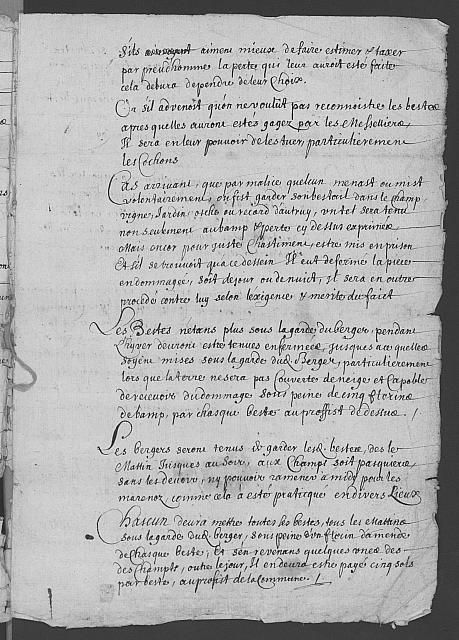 S'ils aiment mieux de faire estimer & taxer
par preudhomme la perte qui leur auroit esté faite
cela debura dependre de leur Choix.
Or s'il advenoit qu'on ne voulut pas reconnoistre les bestes
apres quelles auront estés gagez par les Messelliers
Il sera en leur pouvoir de les tuer, particulierement
les Cochons
Cas arrivant, que par malice quelcun menast ou mist
volontairement, ou fist garder son bestail dans le champ
vigne, Jardin, oscho ou record d'autruy, un tel sera tenu
non seulement au bamp & perte cy dessus exprimée
Mais encor pour juste Chastiment, estre mis en prison
Et s'il se trouvoit qu'a ce dessein Il eut defermé la piece
endommagée, soit de jour ou de nuict, Il sera en outre
procedé contre luy selon l'exigence & merite du faict
Les Bestes n'etans plus sous la garde du berger, pendant
l'hyver devront estre tenues enfermées, jusques a ce quelles
soyent mises sous la garde dud. Berger, particulierement
lors que la terre ne sera pas Couverte de neige et Capable
de recevoir du dommage sous peine de cinq florins
de bamp, par chasque beste au proffist de dessus. /
Les bergers seront tenus de garder lesd. bestes, des le
Mattin Jusques au Soir, aux Champs soit pasquiers
sans les devoir, ny pouvoir ramener a midy pour les
comme cela a esté practiqué en divers Lieux
Chascun devra mettre toutes les bestes, tous les Mattins
sous la garde dud. berger, sous peine d'un florin d'amende
de chasque beste; Et s'en revenans quelques unes des
des Champs, outre le jour, Il en devra estre payé cinq sols
par beste, au profist de la Commune. /